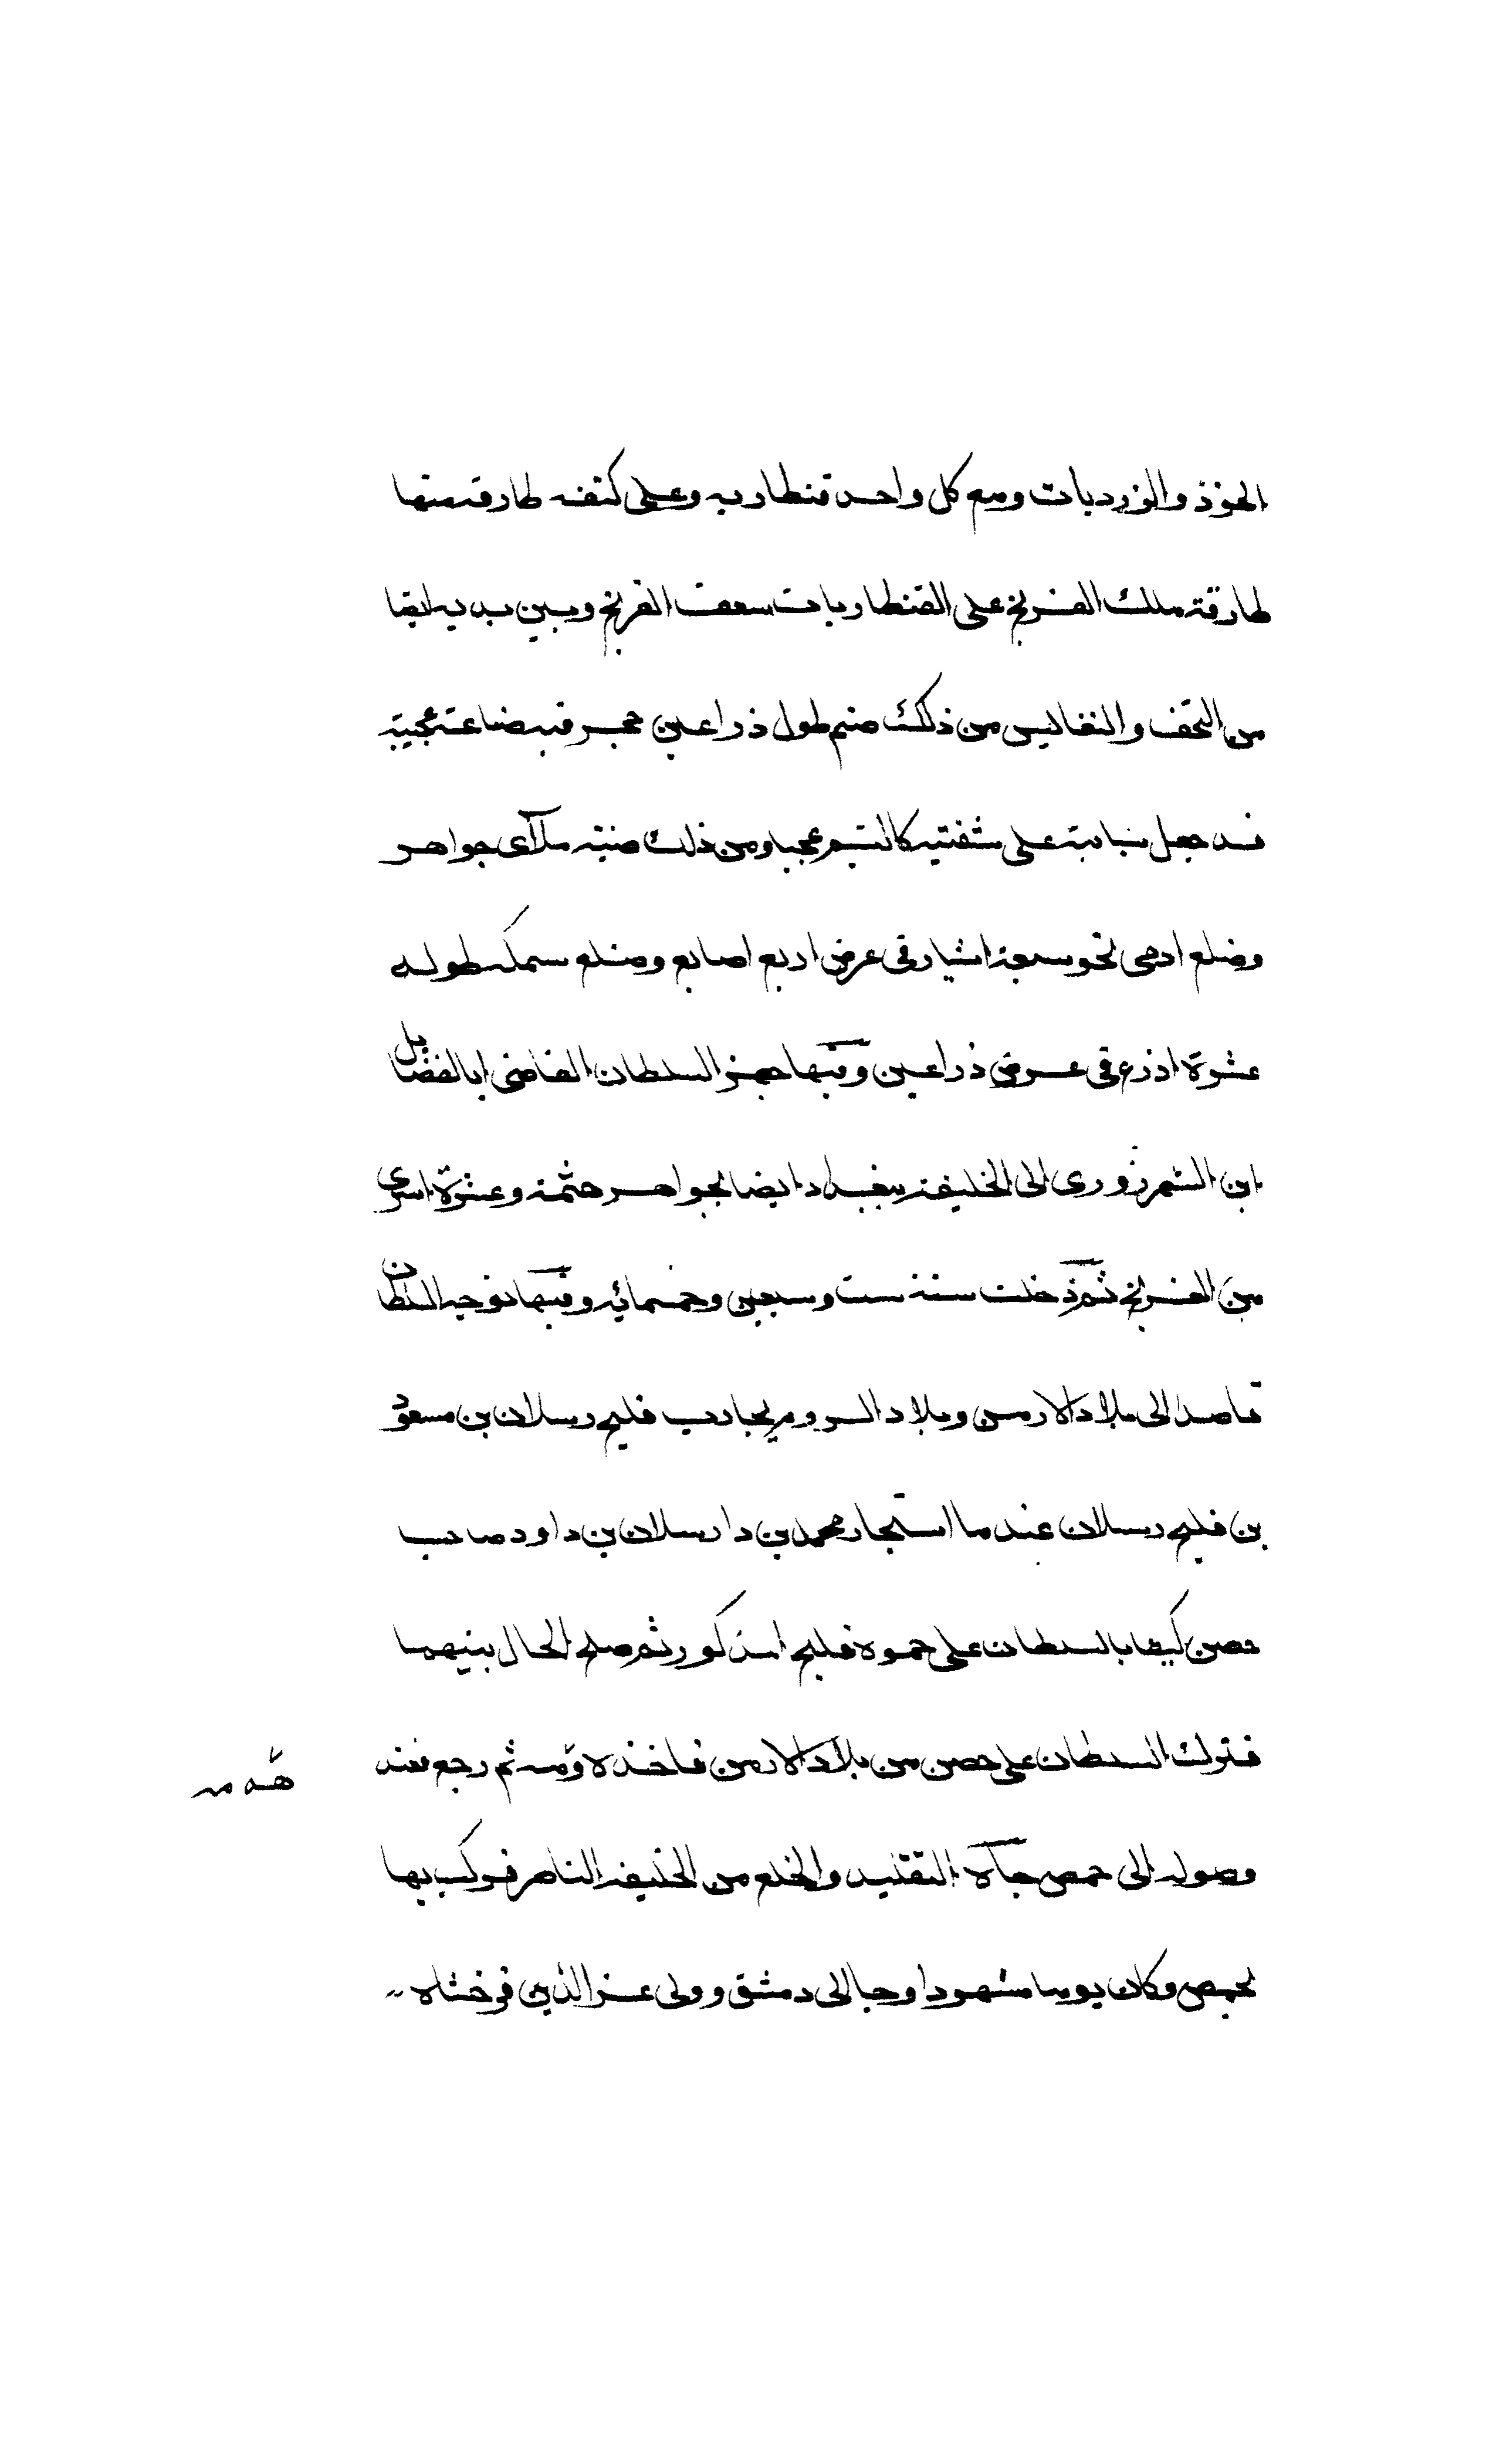 الخوذ والزرديات ومع كل واحد قنطاريه وعلى كتفه طارقه منها
طارقة ملك الفرنج على القنطاريات سعف الفرنج وبين يديه ايضا
من التحف والنفايس من ذلك صنم طول ذراعين حجر فيه ضاعة عجيبة
قد جعل سبابته على شفتيه كالمتبسم عجبا ومن ذلك صنية ملآى جواهر
وضلع ادمى نحو سبعة اشبار فى عرض اربع اصابع وضلع سمكه طوله
عشرة اذرع فى عرض ذراعين وفيها جهز السلطان القاضى ابا الفضايل
ابن الشهرزورى الى الخليفة ببغداد ايضا بجواهر مثمنة وعشرة اسرى
من الفرنج ثم دخلت سنة ست وسبعين وخمسمائه وفيها توجه السلطان
قاصد الى بلاد الارمن وبلاد الروم ليحارب قليج رسلان بن مسعود
بن قليج رسلان عندما استجار محمد بن دارسلان بن داود صاحب
حصن كيفا بالسلطان على حموه قليج المذكور ثم صلح الحال بينهما
فنزل السلطان على حصن من بلاد الارمن فاخذه وهدمه ثم رجع فعند
وصوله الى حمص جآه التقليد والخلع من الخليفه الناصر فركب بها
بحمص وكان يوما مشهودا وجا الى دمشق وولى عز الدين فرخشاه